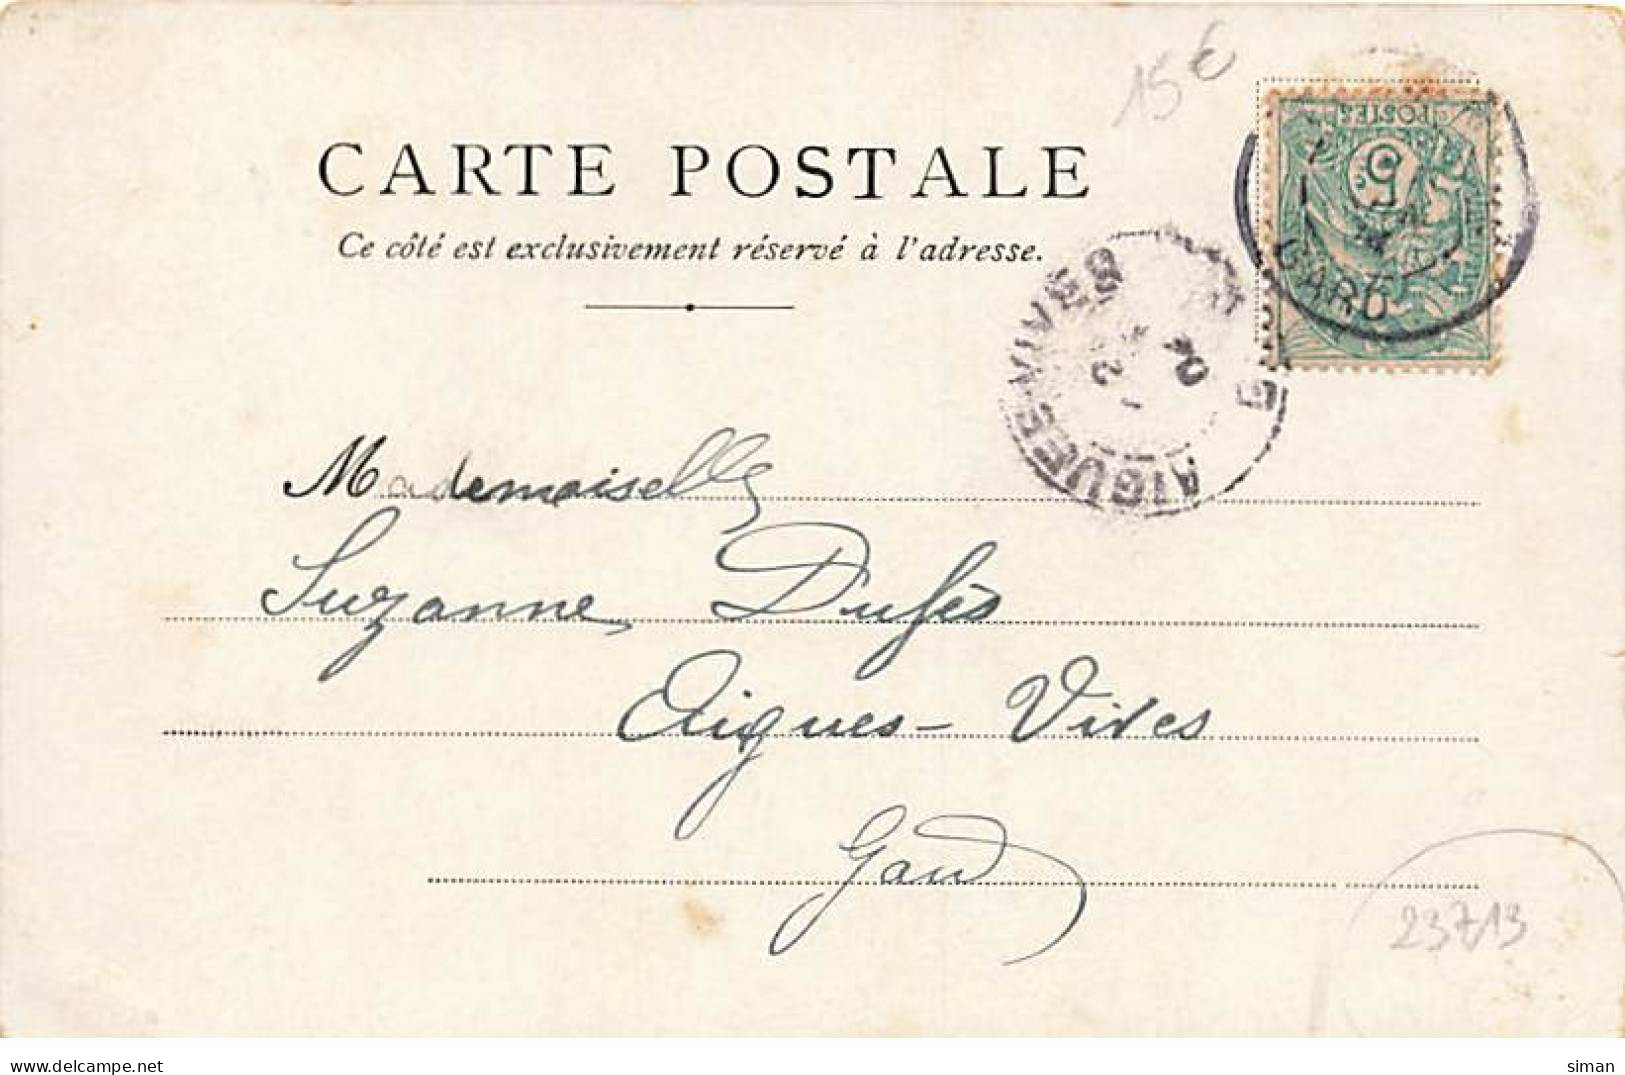 15€
CARTE POSTALE
Ce côté est exclusivement réservé à l'adresse.
POSTES
5
GARD
AIGUES-VIVES
2
04
Mademoiselle
Suzanne Dufès
Aigues-Vives
Gard
23713
delcampe.net
siman